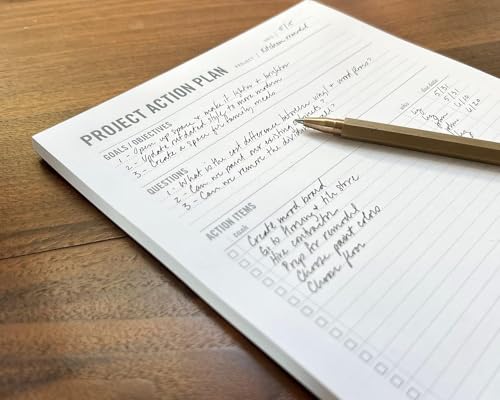 DATE | 5/15
PROJECT ACTION PLAN PROJECT | Kitchen remodel
GOALS / OBJECTIVES
1 - Open up space + make it lighter + brighter
2 - Update outdated style to more modern
3 - Create a space for family meals
QUESTIONS
1 - What is the cost difference between vinyl + wood floors?
2 - Can we paint our existing
3 - Can we remove the dividing
ACTION ITEMS
task who due date
Create mood board 5/31
Go to flooring & tile store 5/31
Hire contractor 6/10
Prep for remodel 6/20
Choose paint colors
Choose floor